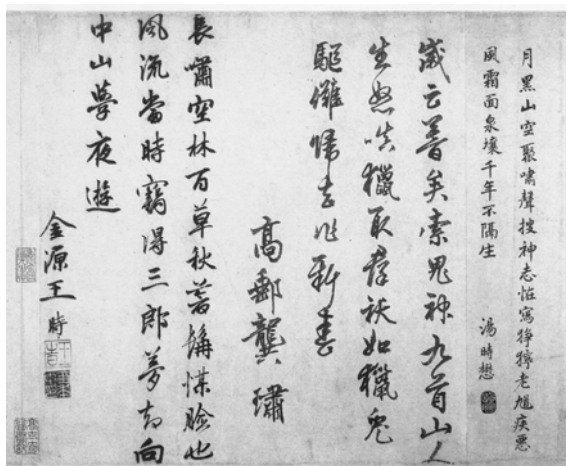 月黑山空聚嘯聲搜神志怪寫猙獰老馗疾惡
風霜面泉壤千年不隔生 湯時懋
歲云暮矣索鬼神九首山人
生怒嗔獵取群祅如獵兔
驅儺歸去作新春
高郵龔璛
長嘯空林百草秋著 臉也
風流當時竊得三郎夢却向
中山學夜遊
金源王時